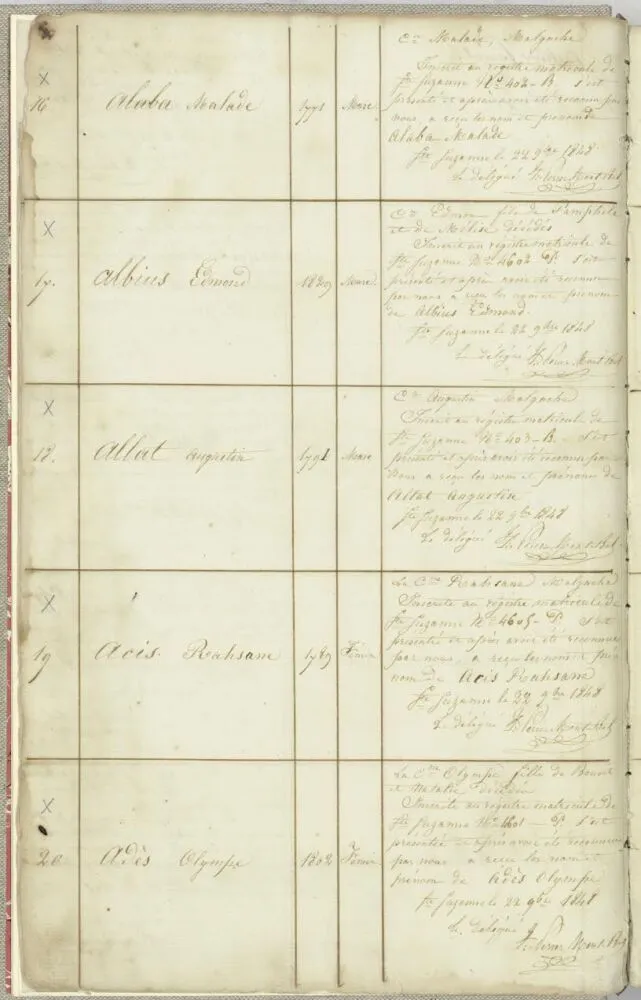 X
16
Alaba Malade
1791
Masc.
Cen Malade, Malgache
Inscrit au registre matricule de
Ste Suzanne No 402 - B s'est
présenté et après avoir été reconnu par
nous, a reçu les nom et prénom de
Alaba Malade
Ste Suzanne le 22 9bre 1848
Le délégué
X
17.
Albius Edmond
1829
Masc.
Cen Edmond fils de Pamphile
et de Mélise décédés
Inscrit au registre matricule de
Ste Suzanne No 4602 - s'est
présenté et après avoir été reconnu
par nous a reçu les nom et prénom
de Albius Edmond.
Ste Suzanne le 22 9bre 1848
Le délégué
X
18.
Allat Augustin
1791
Masc
Cen Augustin Malgache
Inscrit au registre matricule de
Ste Suzanne No 403 - B. s'est
présenté et après avoir été reconnu par
Nous a reçu les nom et prénom de
Allat Augustin
Ste Suzanne le 22 9bre 1848
Le délégué
X
19
Acis. Rahsana
1789
Fémin
La Cenne Rahsana Malgache
Inscrite au registre matricule de
Ste Suzanne No 4605 - s'est
présentée et après avoir été reconnue
par nous, a reçu les nom et pré
nom de Acis Rahsana
Ste Suzanne le 22 9bre 1848
Le délégué
X
20
Adès Olympe
1802
Fémin
La Cenne Olympe fille de
et décédés
Inscrite au registre matricule de
Ste Suzanne No 4601 - s'est
présentée et après avoir été reconnue
par nous a reçu les nom et
prénom de Adès Olympe
Ste Suzanne le 22 9bre 1848
Le délégué